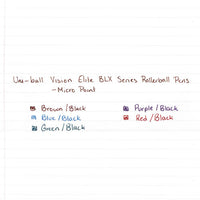 Uni-ball Vision Elite BLX Series Rollerball Pens
- Micro Point
Brown/Black
Purple/Black
Blue/Black
Red/Black
Green/Black